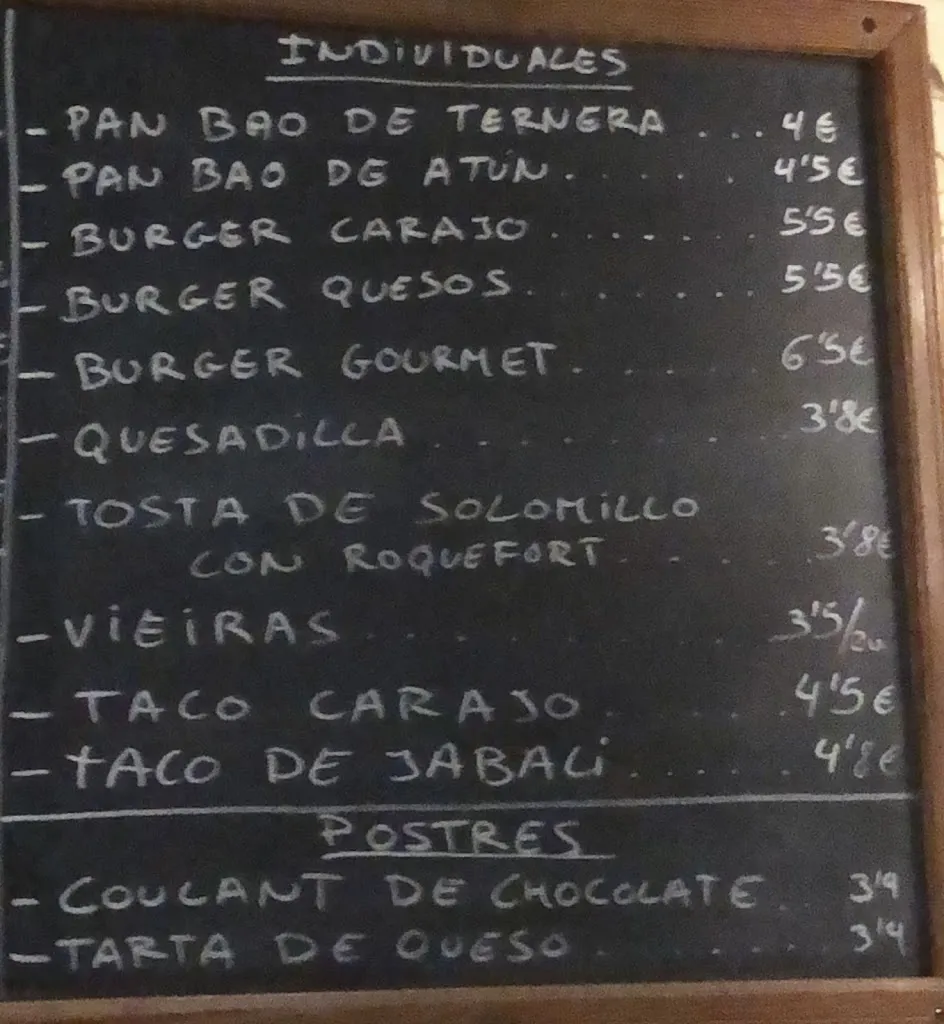 INDIVIDUALES
- PAN BAO DE TERNERA ... 4€
- PAN BAO DE ATÚN ..... 4'5€
- BURGER CARAJO ....... 5'5€
- BURGER QUESOS ....... 5'5€
- BURGER GOURMET ..... 6'5€
- QUESADILLA ....... 3'8€
- TOSTA DE SOLOMILLO
CON ROQUEFORT .... 3'8€
- VIEIRAS ....... 3'5/
- TACO CARAJO .... 4'5€
- TACO DE JABALÍ ..... 4'8€
POSTRES
- COULANT DE CHOCOLATE ..
- TARTA DE QUESO .....